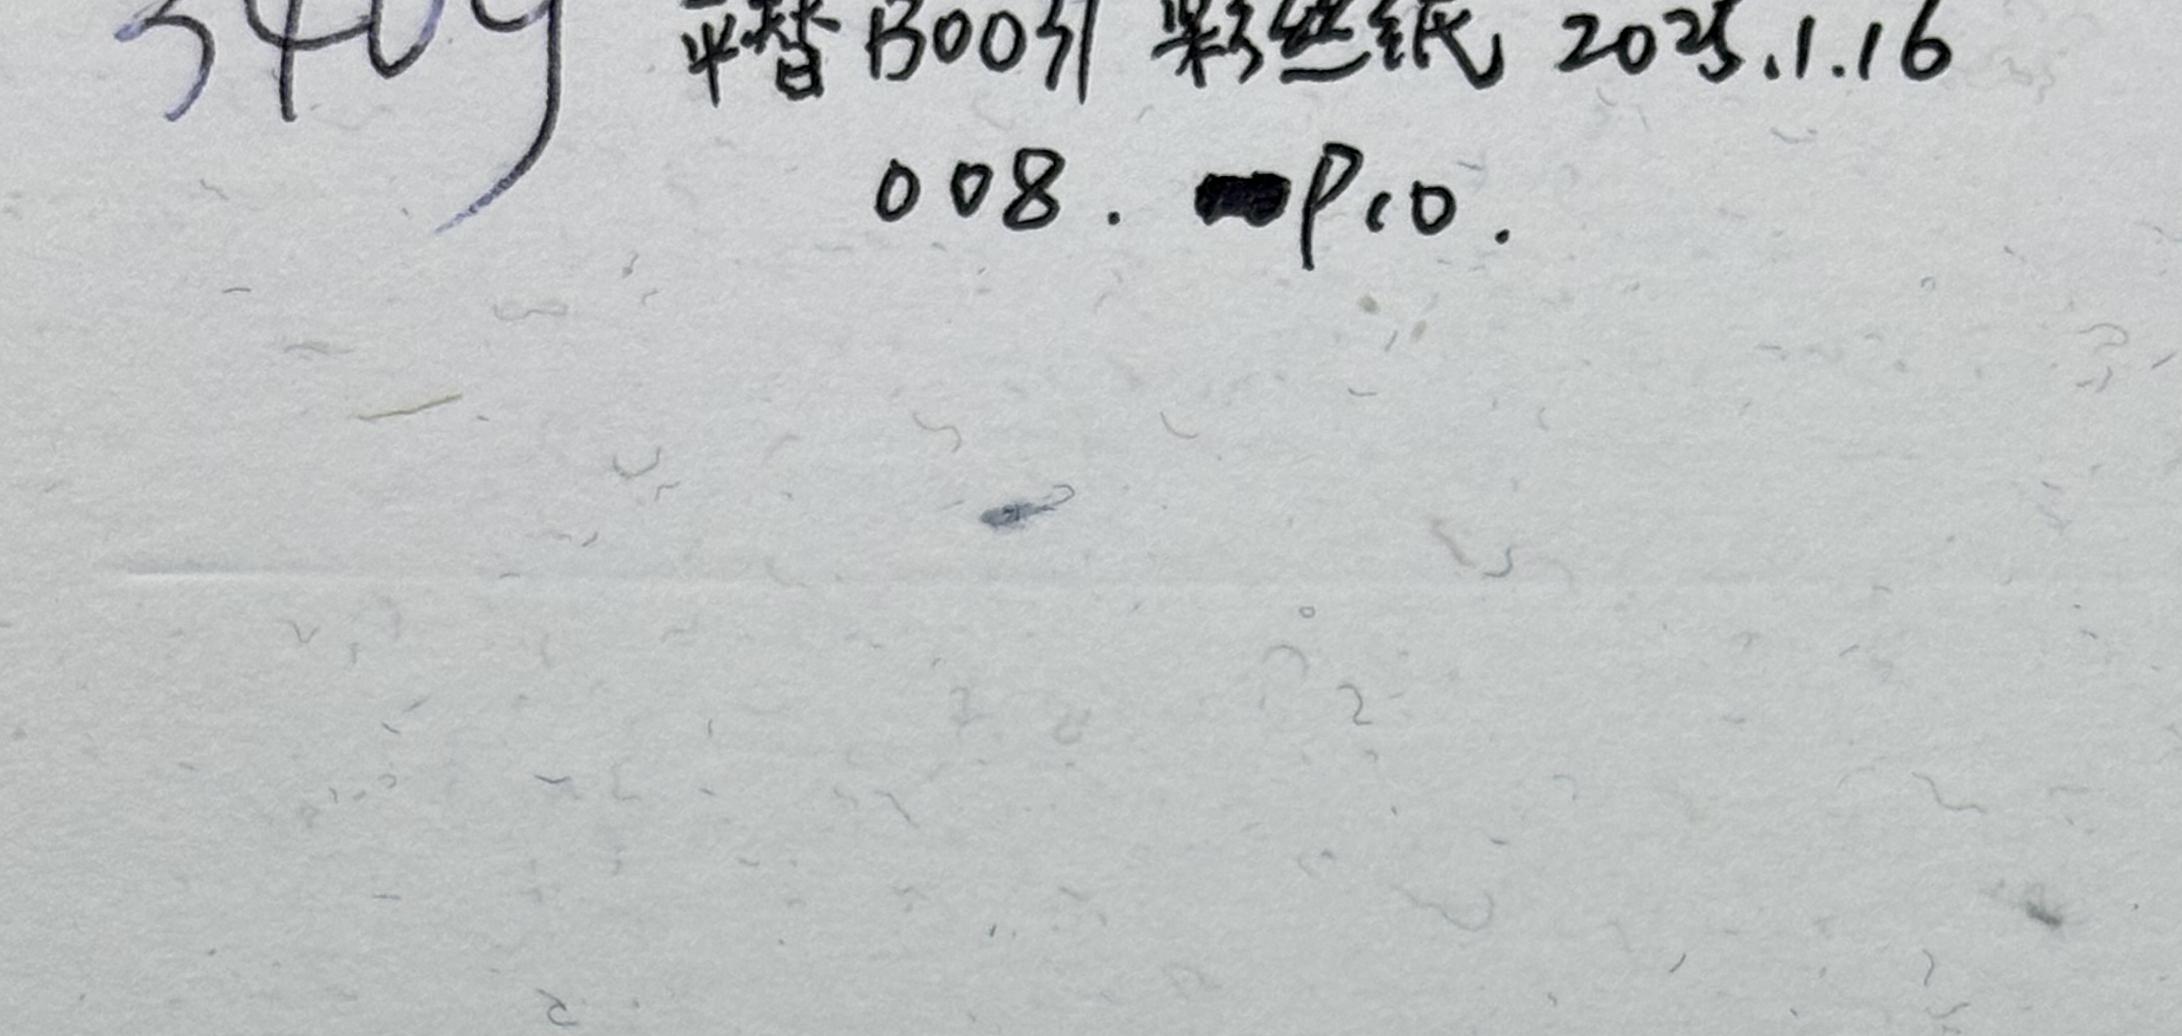 340g 平替B0031 彩丝纸 2025.1.16
008. P10.